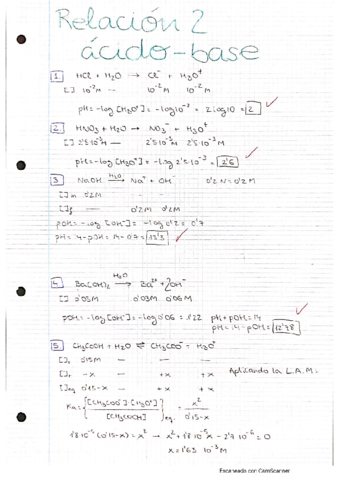 Relación 2
ácido-base
1 HCl + H₂O → Cl⁻ + H₃O⁺
[] 10⁻²M — 10⁻²M 10⁻²M
pH = -log [H₃O⁺] = -log10⁻² = 2log10 = 2
2 HNO₃ + H₂O → NO₃⁻ + H₃O⁺
[] 2'5·10⁻³M — 2'5·10⁻³M 2'5·10⁻³M
pH = -log [H₃O⁺] = -log 2'5·10⁻³ = 2'6
3 NaOH H₂O → Na⁺ + OH⁻ 0'2N = 0'2M
[]in 0'2M — —
[]f — 0'2M 0'2M
pOH = -log [OH⁻] = -log 0'2 = 0'7
pH = 14 - pOH = 14 - 0'7 = 13'3
4 Ba(OH)₂ H₂O → Ba²⁺ + 2OH⁻
[] 0'03M 0'03M 0'06M
pOH = -log [OH⁻] = -log 0'06 = 1'22 pH + pOH = 14
pH = 14 - pOH = 12'78
5 CH₃COOH + H₂O ⇌ CH₃COO⁻ + H₃O⁺
[]₀ 0'15M — — —
[]r -x — +x +x Aplicando la L.A.M:
[]eq 0'15-x — +x +x
Ka = {[CH₃COO⁻]·[H₃O⁺] / [CH₃COOH]}eq. = x² / 0'15-x
1'8·10⁻⁵ (0'15-x) = x² → x² + 1'8·10⁻⁵x - 2'7·10⁻⁶ = 0
x = 1'63·10⁻³M
Escaneado con CamScanner